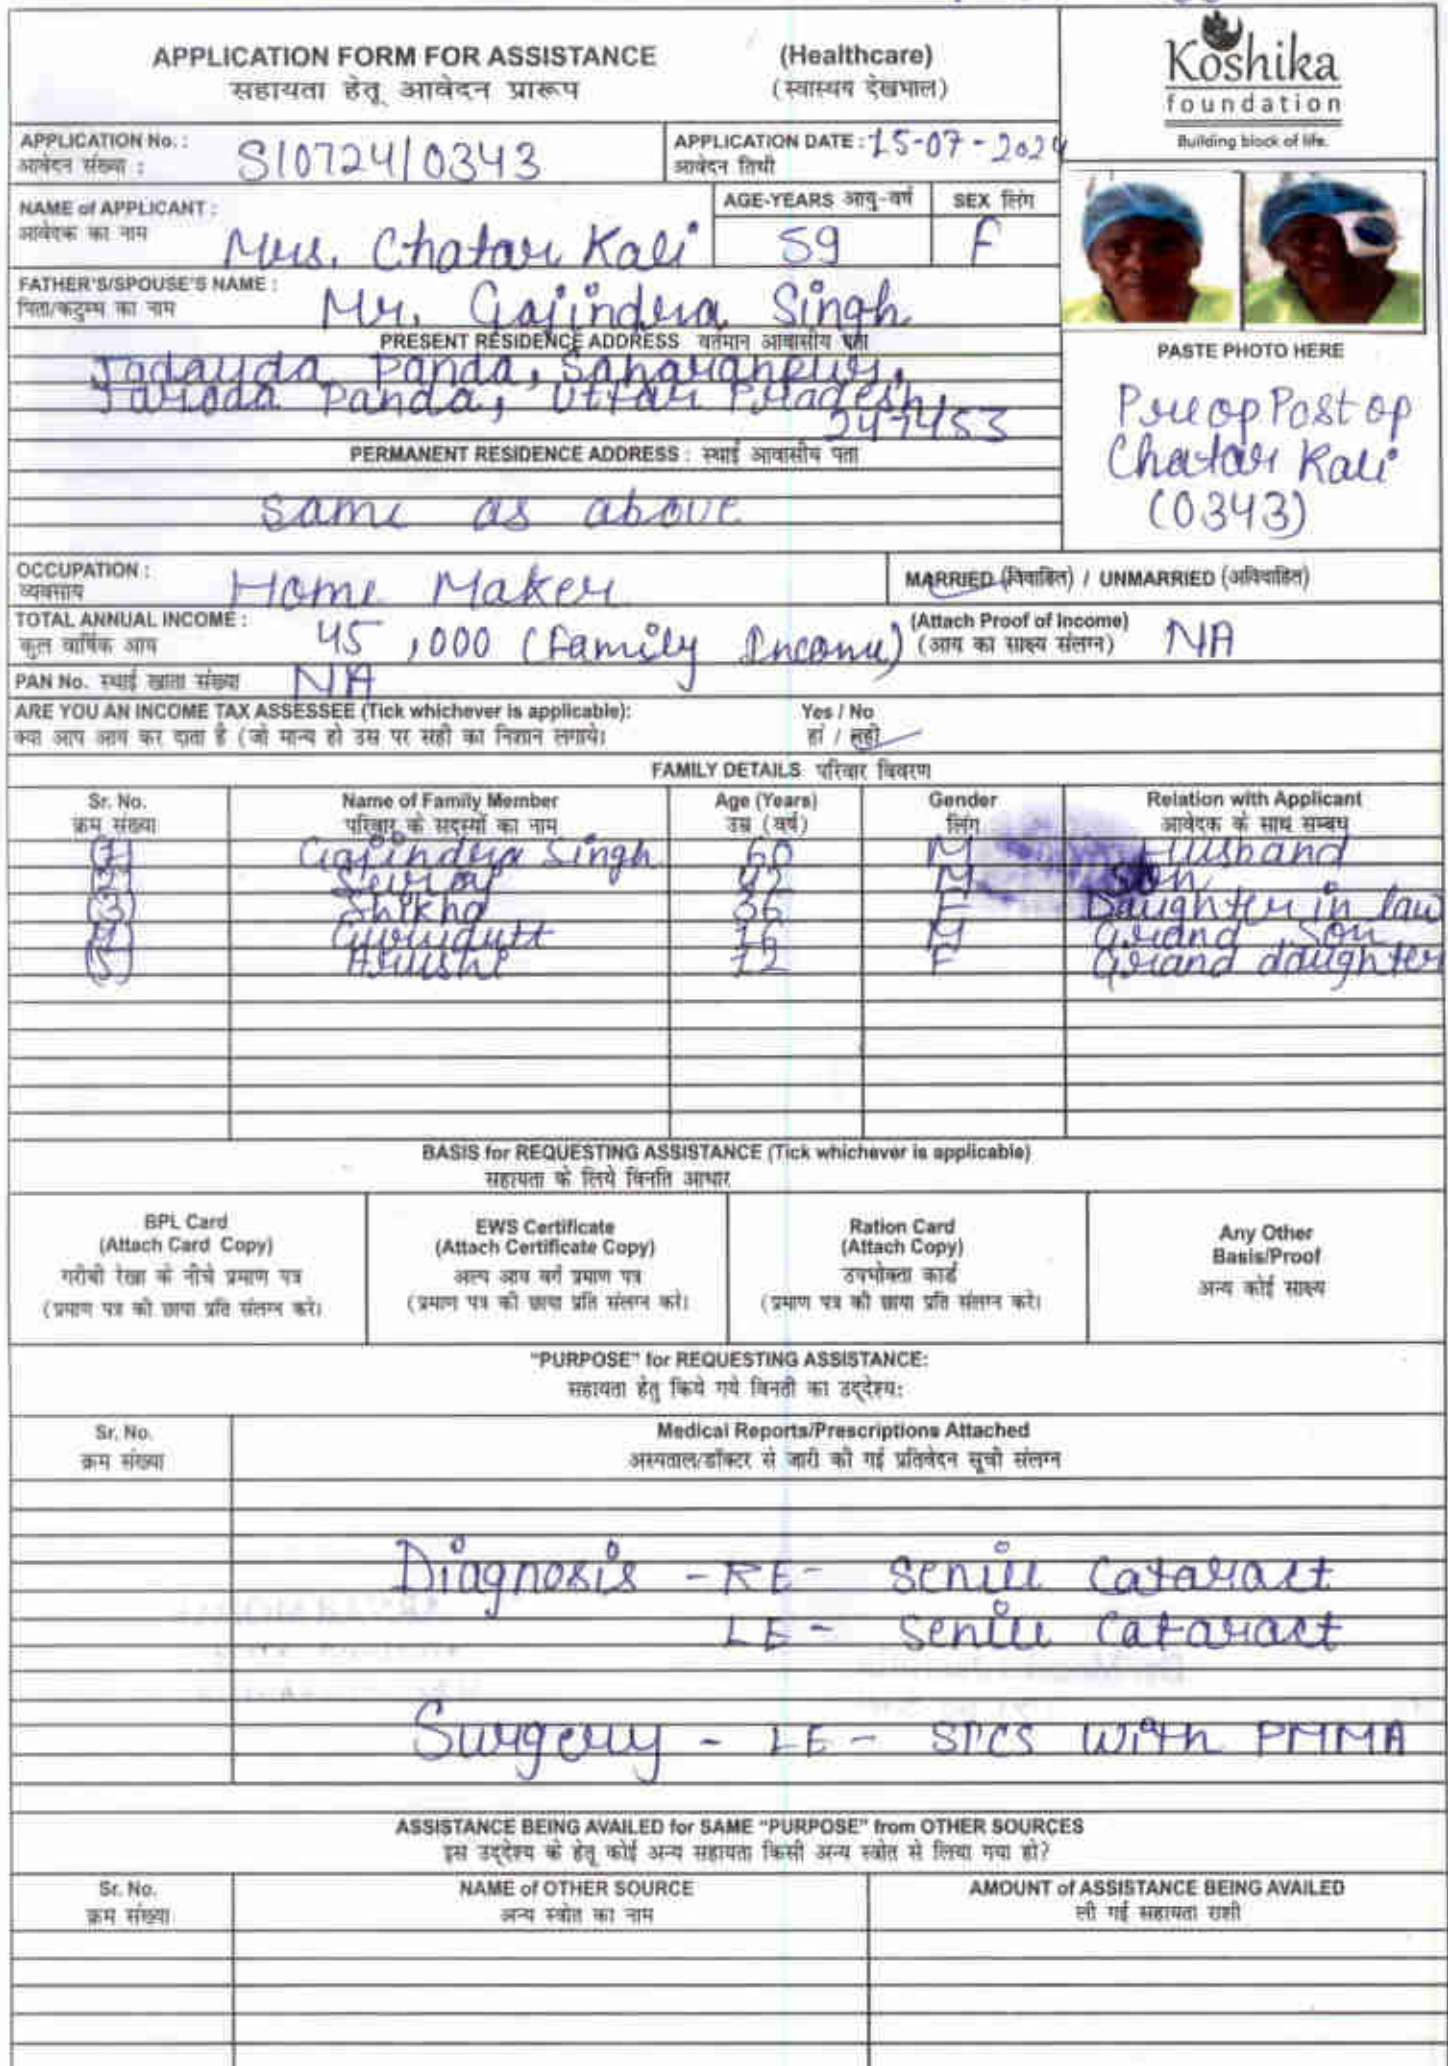 APPLICATION FORM FOR ASSISTANCE (Healthcare)
सहायता हेतू आवेदन प्रारूप (स्वास्थय देखभाल)
Koshika
foundation
Building block of life.
APPLICATION No. : S/0724/0343 APPLICATION DATE : 15-07-2024
आवेदन संख्या : आवेदन तिथी
NAME of APPLICANT : Mrs. Chatar Kali AGE-YEARS आयु-वर्ष 59 SEX लिंग F
आवेदक का नाम
FATHER'S/SPOUSE'S NAME : Mr. Gajindra Singh
पिता/कटुम्ब का नाम
PRESENT RESIDENCE ADDRESS वर्तमान आवासीय पता
Panda, Saharanpur,
Panda, Uttar Pradesh
247453
PERMANENT RESIDENCE ADDRESS : स्थाई आवासीय पता
same as above
PASTE PHOTO HERE
Preop Post op
Chatar Kali
(0343)
OCCUPATION : Home Maker MARRIED (विवाहित) / UNMARRIED (अविवाहित)
व्यवसाय
TOTAL ANNUAL INCOME : 45,000 (Family Income) (Attach Proof of Income) NA
कुल वार्षिक आय (आय का साक्ष्य संलग्न)
PAN No. स्थाई खाता संख्या NA
ARE YOU AN INCOME TAX ASSESSEE (Tick whichever is applicable): Yes / No
क्या आप आय कर दाता है (जो मान्य हो उस पर सही का निशान लगाये। हां / नही
FAMILY DETAILS परिवार विवरण
Sr. No. Name of Family Member Age (Years) Gender Relation with Applicant
क्रम संख्या परिवार के सदस्यों का नाम उम्र (वर्ष) लिंग आवेदक के साथ सम्बध
(1) Gajindra Singh 60 M Husband
(2) 42 M Son
(3) Shikha 36 F Daughter in law
(4) Gurudutt 16 M Grand Son
(5) Arushi 12 F Grand daughter
BASIS for REQUESTING ASSISTANCE (Tick whichever is applicable)
सहायता के लिये विनति आधार
BPL Card
(Attach Card Copy)
गरीबी रेखा के नीचे प्रमाण पत्र
(प्रमाण पत्र की छाया प्रति संलग्न करे।
EWS Certificate
(Attach Certificate Copy)
अल्प आय वर्ग प्रमाण पत्र
(प्रमाण पत्र की छाया प्रति संलग्न करे।
Ration Card
(Attach Copy)
उपभोक्ता कार्ड
(प्रमाण पत्र की छाया प्रति संलग्न करे।
Any Other
Basis/Proof
अन्य कोई साक्ष्य
"PURPOSE" for REQUESTING ASSISTANCE:
सहायता हेतु किये गये विनती का उद्देश्य:
Sr. No. Medical Reports/Prescriptions Attached
क्रम संख्या अस्पताल/डॉक्टर से जारी की गई प्रतिवेदन सूची संलग्न
Diagnosis - RE - Senile Cataract
LE - Senile Cataract
Surgery - LE - SICS with PMMA
ASSISTANCE BEING AVAILED for SAME "PURPOSE" from OTHER SOURCES
इस उद्देश्य के हेतू कोई अन्य सहायता किसी अन्य स्त्रोत से लिया गया हो?
Sr. No. NAME of OTHER SOURCE AMOUNT of ASSISTANCE BEING AVAILED
क्रम संख्या अन्य स्त्रोत का नाम ली गई सहायता राशी